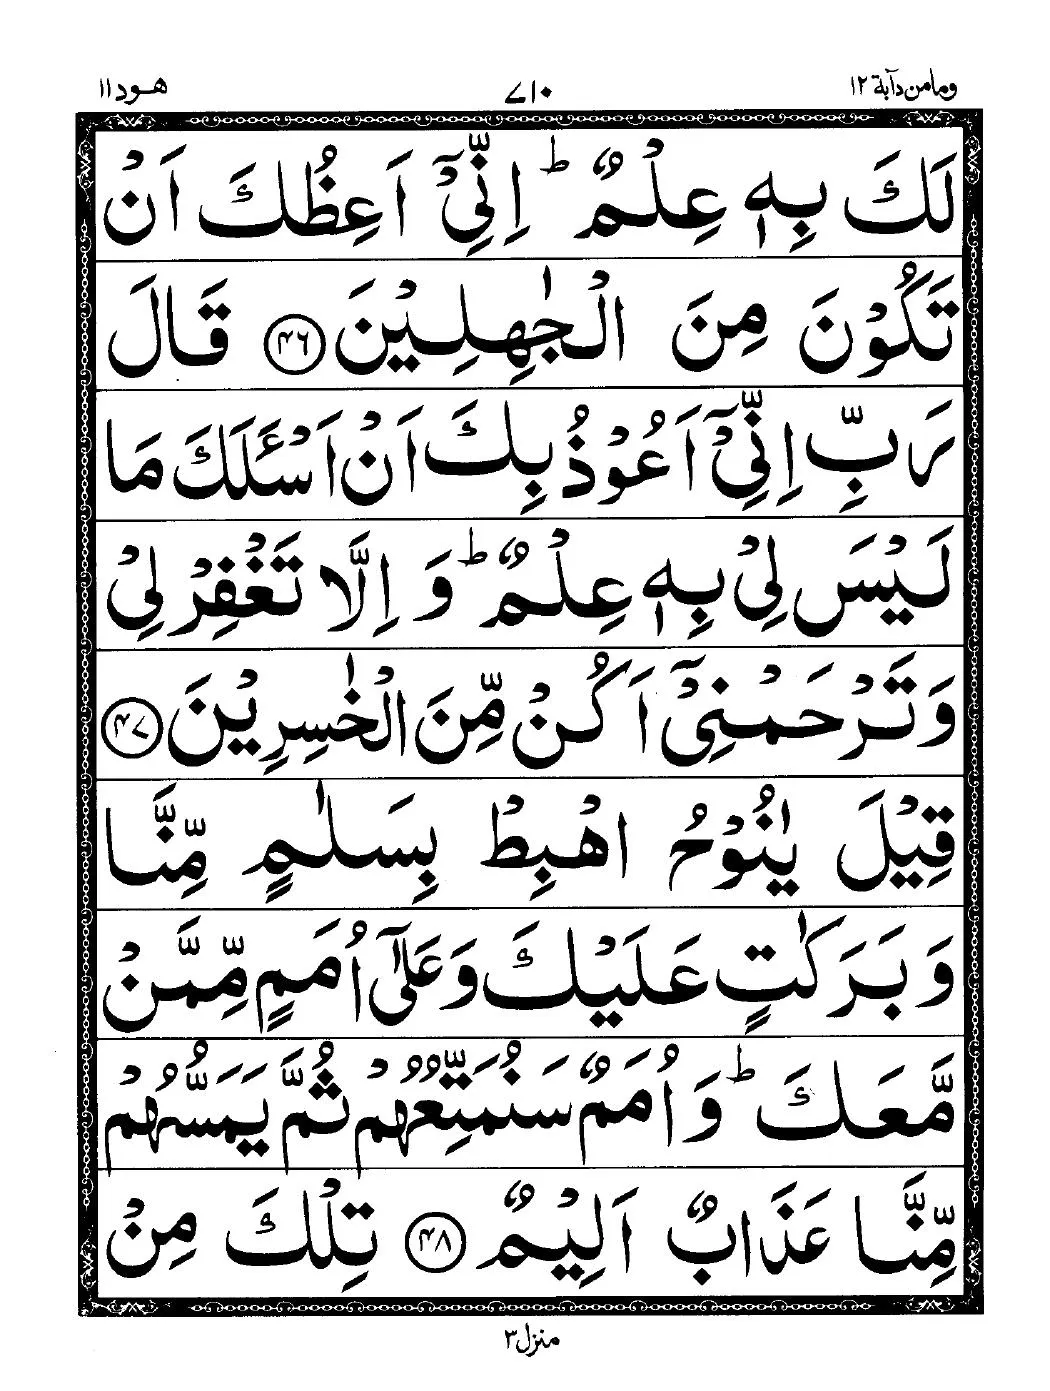 ومامن دآبة ١٢ ٧١٠ هود ١١
لَكَ بِهٖ عِلْمٌ ؕ اِنِّیْۤ اَعِظُكَ اَنْ
تَكُوْنَ مِنَ الْجٰهِلِیْنَ ﴿۴۶﴾ قَالَ
رَبِّ اِنِّیْۤ اَعُوْذُ بِكَ اَنْ اَسْـَٔلَكَ مَا
لَیْسَ لِیْ بِهٖ عِلْمٌ ؕ وَ اِلَّا تَغْفِرْ لِیْ
وَتَرْحَمْنِیْۤ اَكُنْ مِّنَ الْخٰسِرِیْنَ ﴿۴۷﴾
قِیْلَ یٰنُوْحُ اهْبِطْ بِسَلٰمٍ مِّنَّا
وَ بَرَكٰتٍ عَلَیْكَ وَعَلٰۤی اُمَمٍ مِّمَّنْ
مَّعَكَ ؕ وَ اُمَمٌ سَنُمَتِّعُهُمْ ثُمَّ یَمَسُّهُمْ
مِّنَّا عَذَابٌ اَلِیْمٌ ﴿۴۸﴾ تِلْكَ مِنْ
منزل ٣